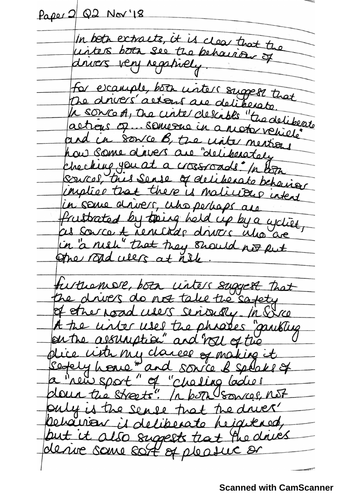 Paper 2 Q2 Nov '18
In both extracts, it is clear that the
writers both see the behaviour of
drivers very negatively.
For example, both writers suggest that
the drivers' actions are deliberate.
In source A, the writer describes "the deliberate
actions of... someone in a motor vehicle"
and in source B, the writer mentions
how some drivers are "deliberately
checking you at a crossroads". In both
sources, this sense of deliberate behaviour
implies that there is malicious intent
in some drivers, who perhaps are
frustrated by being held up by a cyclist,
as source A drivers who are
in "a rush" that they should not put
other road users at risk.
Furthermore, both writers suggest that
the drivers do not take the safety
of other road users seriously. In source
A the writer uses the phrases "gambling
on the assumption" and "roll of the
dice with my chances of making it
safely home" and source B speaks of
a "new sport" of "chasing ladies
down the streets". In both sources, not
only is the sense that the drivers'
behaviour is deliberate heightened,
but it also suggests that the drivers
derive some sort of pleasure or
Scanned with CamScanner